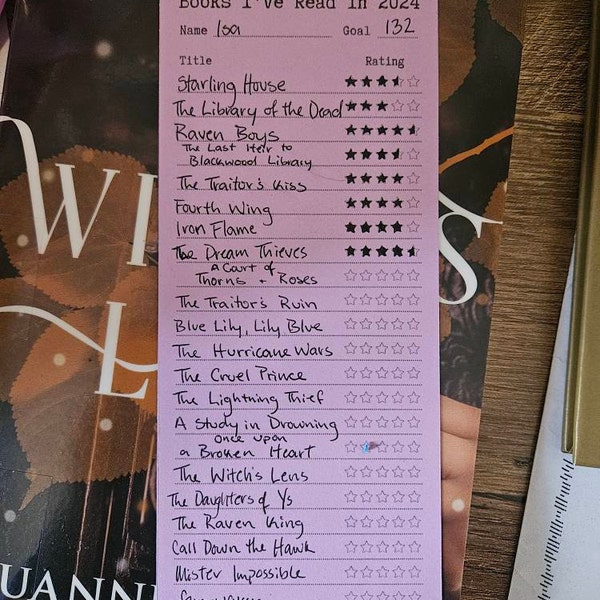 Books I've Read in 2024
Name Isa Goal 132
Title Rating
Starling House
The Library of the Dead
Raven Boys
The Last Heir to
Blackwood Library
The Traitor's Kiss
Fourth Wing
Iron Flame
The Dream Thieves
A Court of
Thorns + Roses
The Traitor's Ruin
Blue Lily, Lily Blue
The Hurricane Wars
The Cruel Prince
The Lightning Thief
A Study in Drowning
once upon
a Broken Heart
The Witch's Lens
The Daughters of Ys
The Raven King
Call Down the Hawk
Mister Impossible
WI
S
L
UANNE